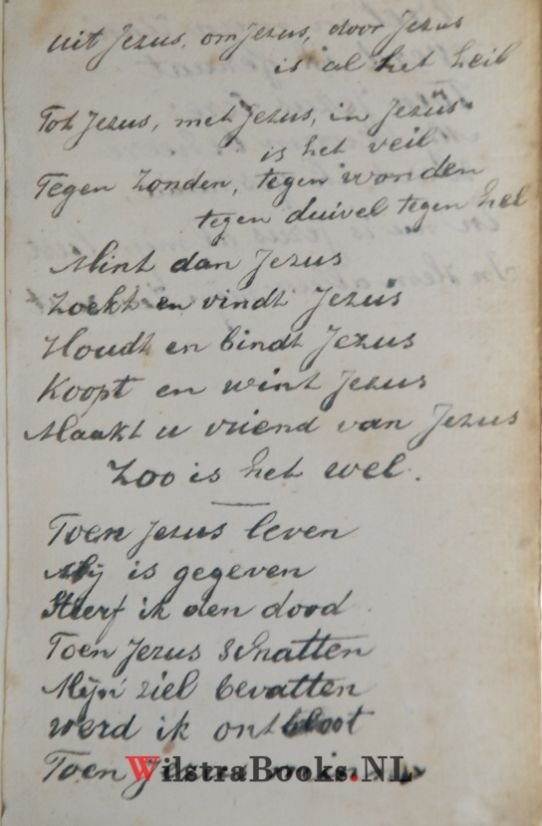 uit Jezus, om Jezus, door Jezus
is al het heil
Tot Jezus, met Jezus, in Jezus
is het veil
Tegen zonden, tegen wonden
tegen duivel tegen hel
Mint dan Jezus
Zoekt en vindt Jezus
Houdt en bindt Jezus
Koopt en wint Jezus
Maakt u vriend van Jezus
Zoo is het wel.
Toen Jezus leven
Mij is gegeven
Stierf ik den dood
Toen Jezus schatten
Mijn ziel bevatten
werd ik ontbloot
Toen Jezus
WilstraBooks.NL